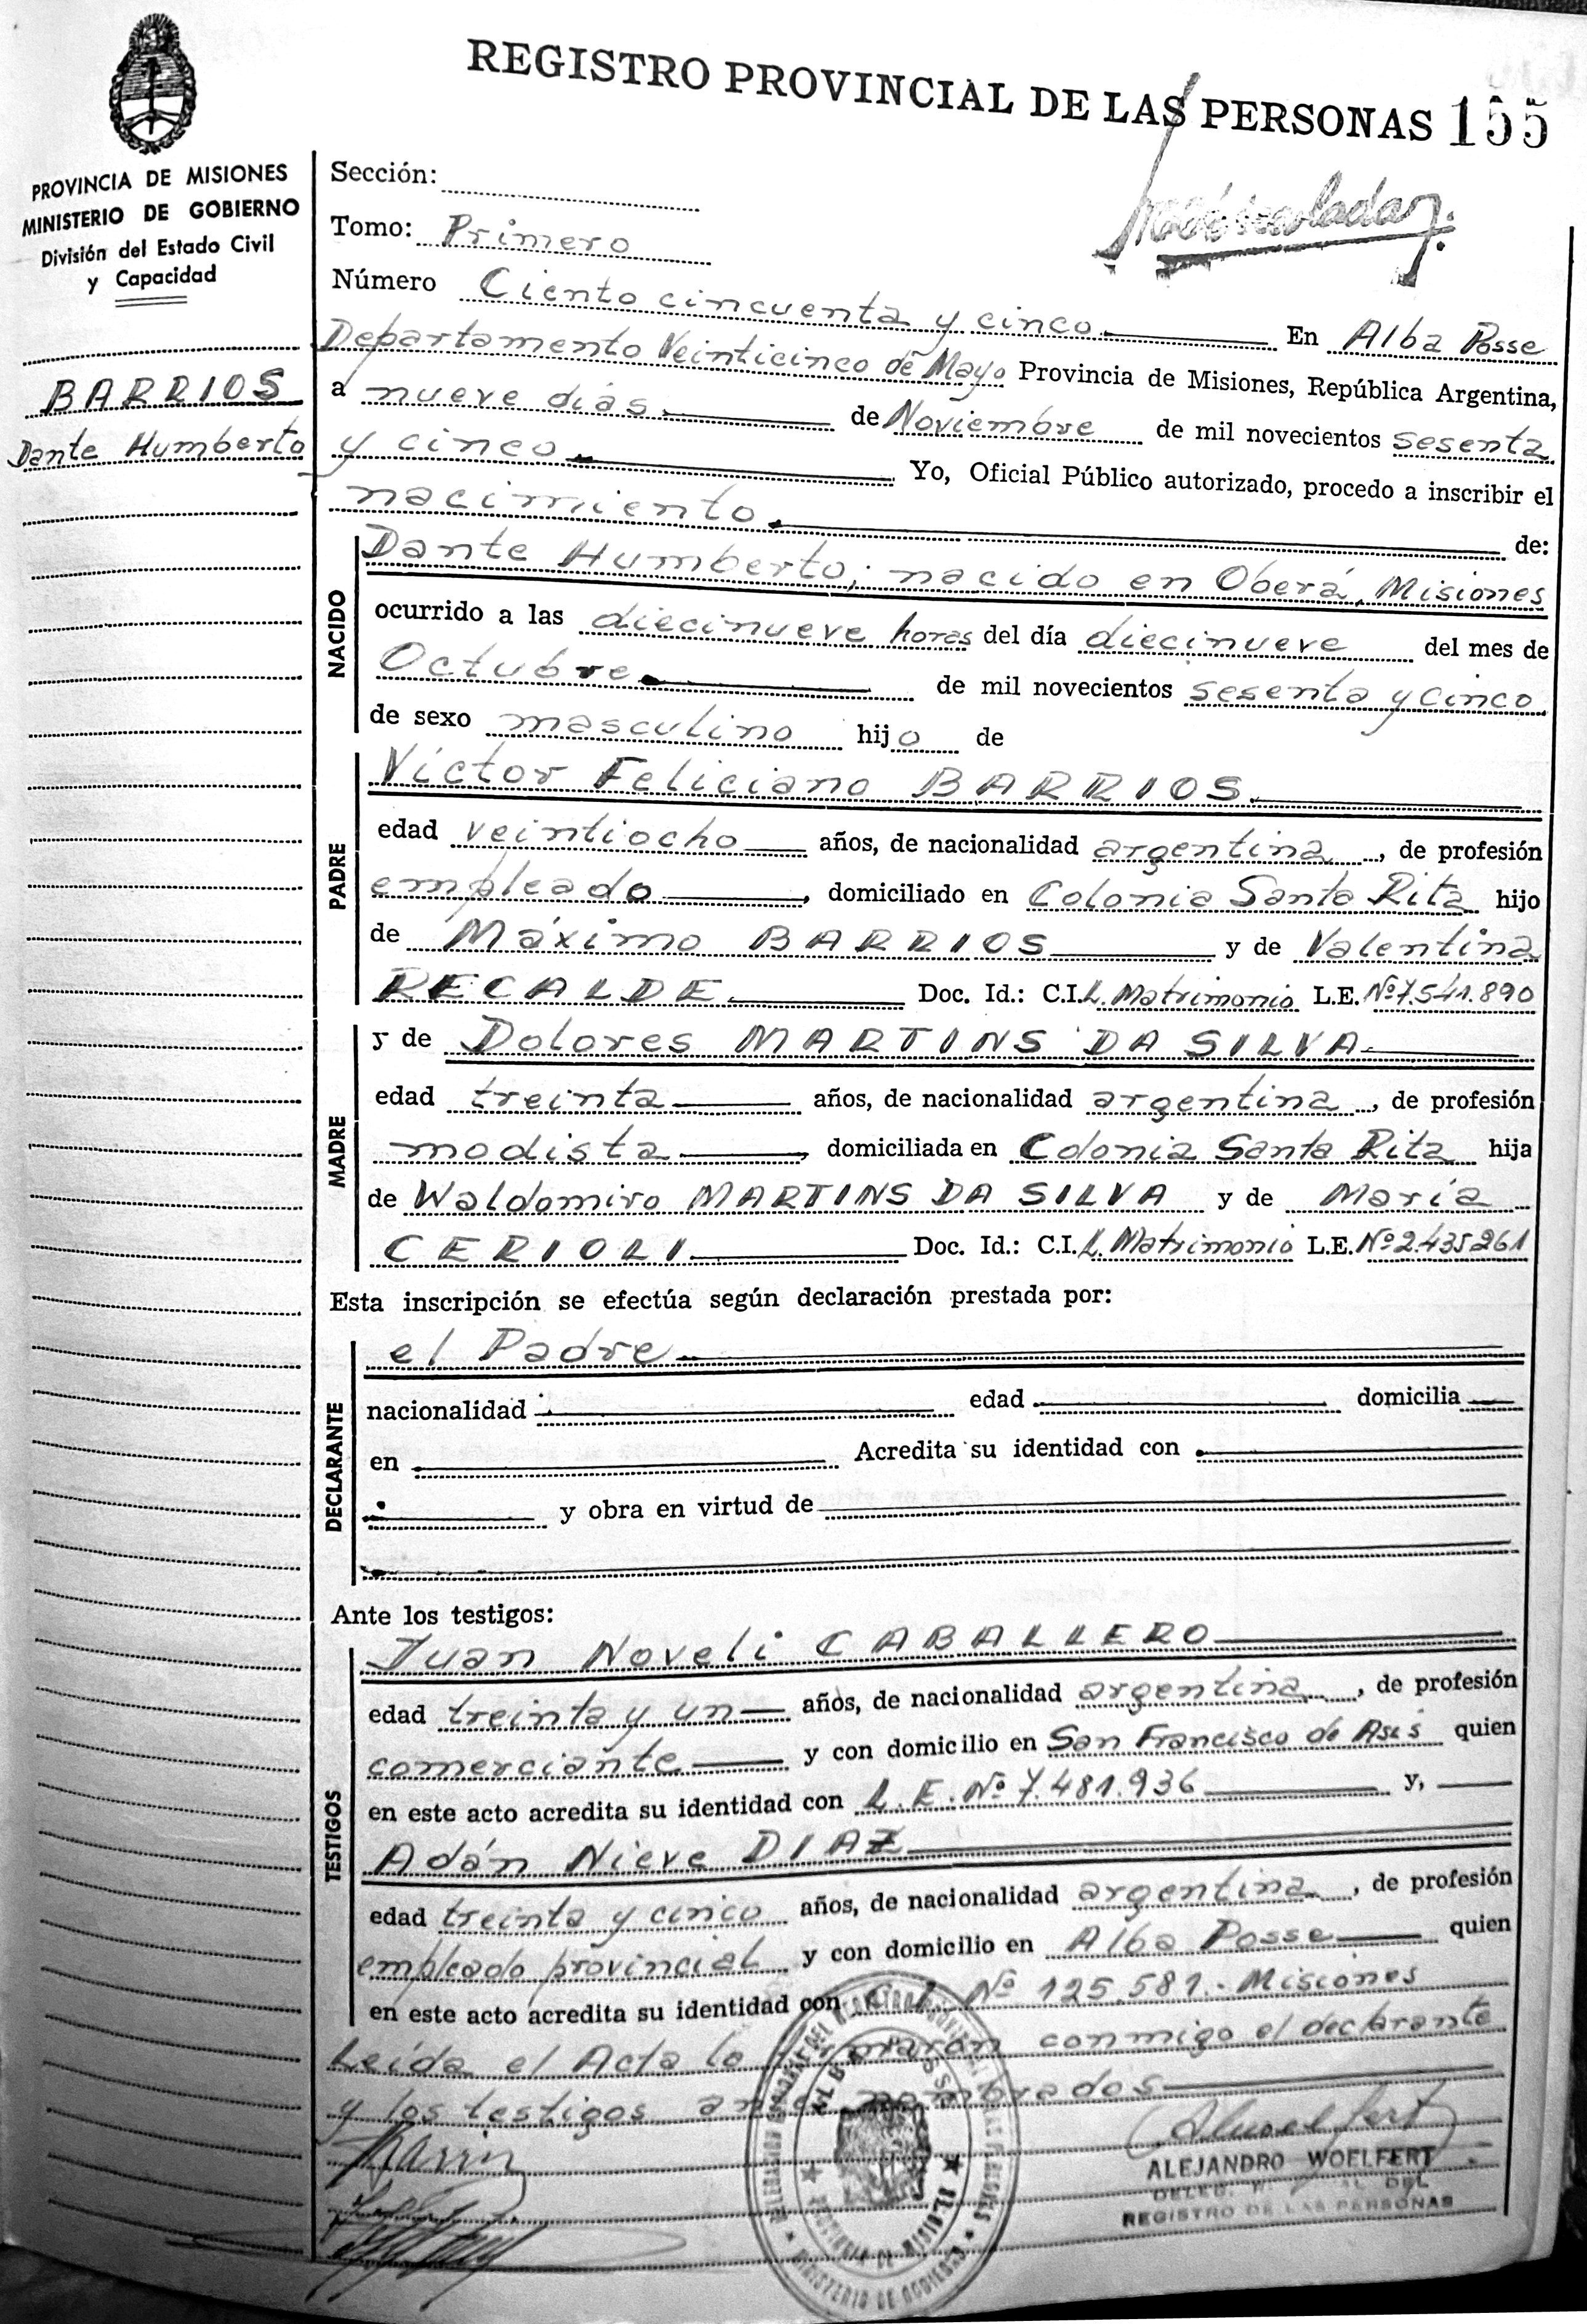 REGISTRO PROVINCIAL DE LAS PERSONAS 155
PROVINCIA DE MISIONES
MINISTERIO DE GOBIERNO
División del Estado Civil
y Capacidad
BARRIOS
Dante Humberto
Sección:
Tomo: Primero
Número Ciento cincuenta y cinco. En Alba Posse
Departamento Veinticinco de Mayo Provincia de Misiones, República Argentina,
a nueve días. de Noviembre de mil novecientos sesenta
y cinco. Yo, Oficial Público autorizado, procedo a inscribir el
nacimiento. de:
NACIDO
Dante Humberto; nacido en Oberá, Misiones
ocurrido a las diecinueve horas del día diecinueve del mes de
Octubre de mil novecientos sesenta y cinco.
de sexo masculino hijo de
PADRE
Víctor Feliciano BARRIOS.
edad veintiocho años, de nacionalidad argentina, de profesión
empleado, domiciliado en Colonia Santa Rita hijo
de Máximo BARRIOS y de Valentina
RECALDE. Doc. Id.: C.I. L. Matrimonio L.E. Nº 7.541.890
MADRE
y de Dolores MARTINS DA SILVA.
edad treinta años, de nacionalidad argentina, de profesión
modista, domiciliada en Colonia Santa Rita hija
de Waldomiro MARTINS DA SILVA y de María
CERIOLI. Doc. Id.: C.I. L. Matrimonio L.E. Nº 2.435261
Esta inscripción se efectúa según declaración prestada por:
DECLARANTE
el Padre
nacionalidad edad domicilia
en Acredita su identidad con
y obra en virtud de
Ante los testigos:
TESTIGOS
Juan Noveli CABALLERO
edad treinta y un años, de nacionalidad argentina, de profesión
comerciante y con domicilio en San Francisco de Asís quien
en este acto acredita su identidad con L. E. Nº 7.481.936 y,
Adán Nieve DIAZ
edad treinta y cinco años, de nacionalidad argentina, de profesión
empleado provincial y con domicilio en Alba Posse quien
en este acto acredita su identidad con C.I. Nº 125.581. Misiones
Leída el Acta la firmaron conmigo el declarante
y los testigos antes nombrados
ALEJANDRO WOELFERT
REGISTRO DE LAS PERSONAS
PROVINCIA DE MISIONES
MINISTERIO DE GOBIERNO